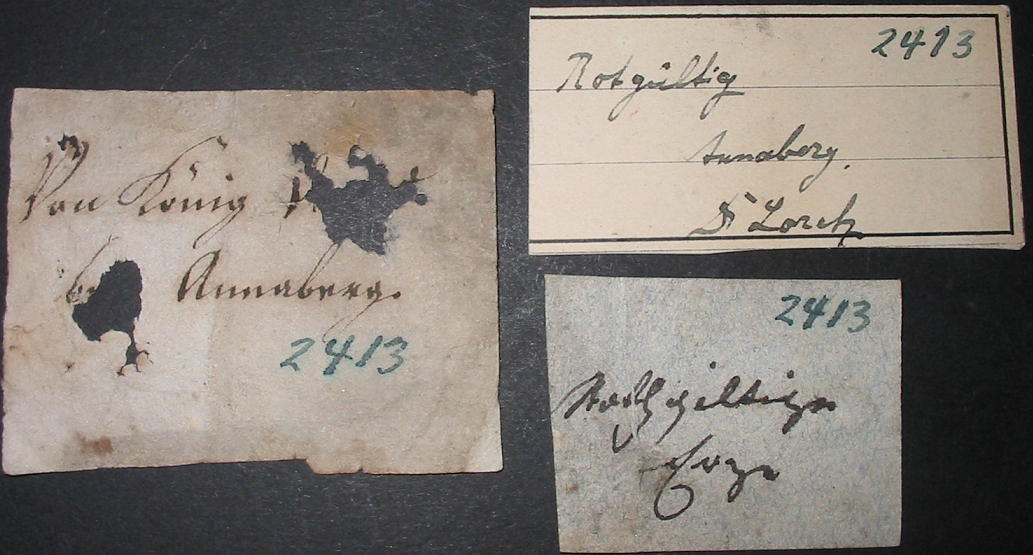 Von König
Annaberg.
2413
2413
Rotgültig
Annaberg.
Dr Lorch
2413
Rothgiltige
Erze